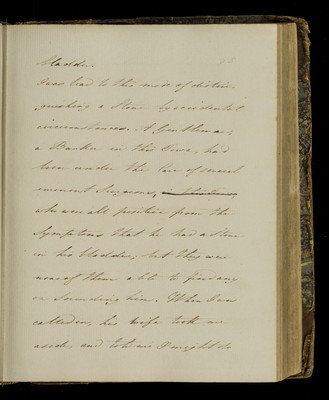 bladder.
I was lead to this mode of distin-
guishing a Stone by accidental
circumstances. A Gentleman,
a Banker in this Town, had
been under the Care of several
eminent Surgeons,
who were all positive from the
Symptoms that he had a Stone
in his bladder, but they were
none of them able to find any
on Sounding him. When I was
called in, his wife took me
aside, and told me I might do